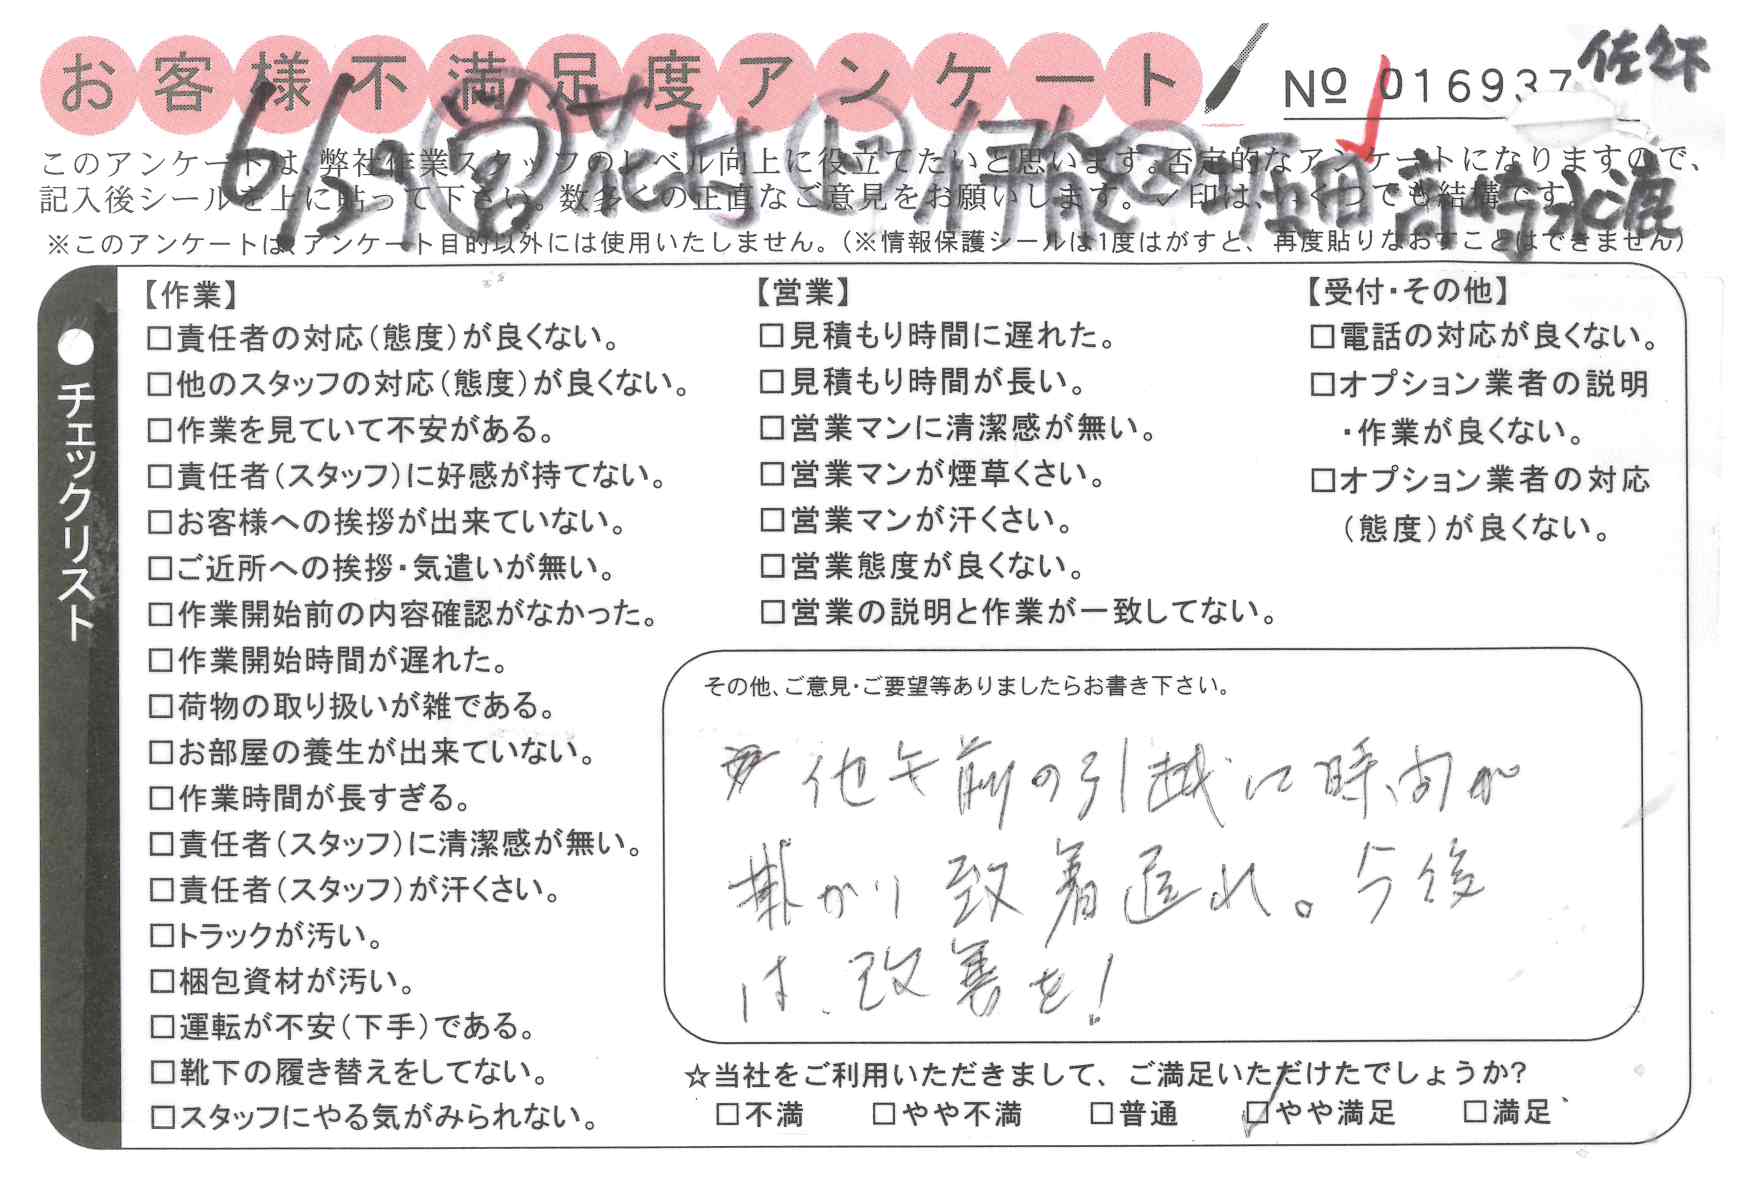 お客様不満足度アンケート
№ 016937
このアンケートは、弊社作業スタッフのレベル向上に役立てたいと思います。否定的なアンケートになりますので、
記入後シールを上に貼って下さい。数多くの正直なご意見をお願いします。✓印は、いくつでも結構です。
※このアンケートは、アンケート目的以外には使用いたしません。（※情報保護シールは1度はがすと、再度貼りなおすことはできません）
●チェックリスト
【作業】
□責任者の対応（態度）が良くない。
□他のスタッフの対応（態度）が良くない。
□作業を見ていて不安がある。
□責任者（スタッフ）に好感が持てない。
□お客様への挨拶が出来ていない。
□ご近所への挨拶・気遣いが無い。
□作業開始前の内容確認がなかった。
□作業開始時間が遅れた。
□荷物の取り扱いが雑である。
□お部屋の養生が出来ていない。
□作業時間が長すぎる。
□責任者（スタッフ）に清潔感が無い。
□責任者（スタッフ）が汗くさい。
□トラックが汚い。
□梱包資材が汚い。
□運転が不安（下手）である。
□靴下の履き替えをしてない。
□スタッフにやる気がみられない。
【営業】
□見積もり時間に遅れた。
□見積もり時間が長い。
□営業マンに清潔感が無い。
□営業マンが煙草くさい。
□営業マンが汗くさい。
□営業態度が良くない。
□営業の説明と作業が一致してない。
【受付・その他】
□電話の対応が良くない。
□オプション業者の説明
・作業が良くない。
□オプション業者の対応
（態度）が良くない。
その他、ご意見・ご要望等ありましたらお書き下さい。
他午前の引越に時間が
掛かり到着遅れ。今後
は、改善を！
☆当社をご利用いただきまして、ご満足いただけたでしょうか?
□不満 □やや不満 □普通 ☑やや満足 □満足